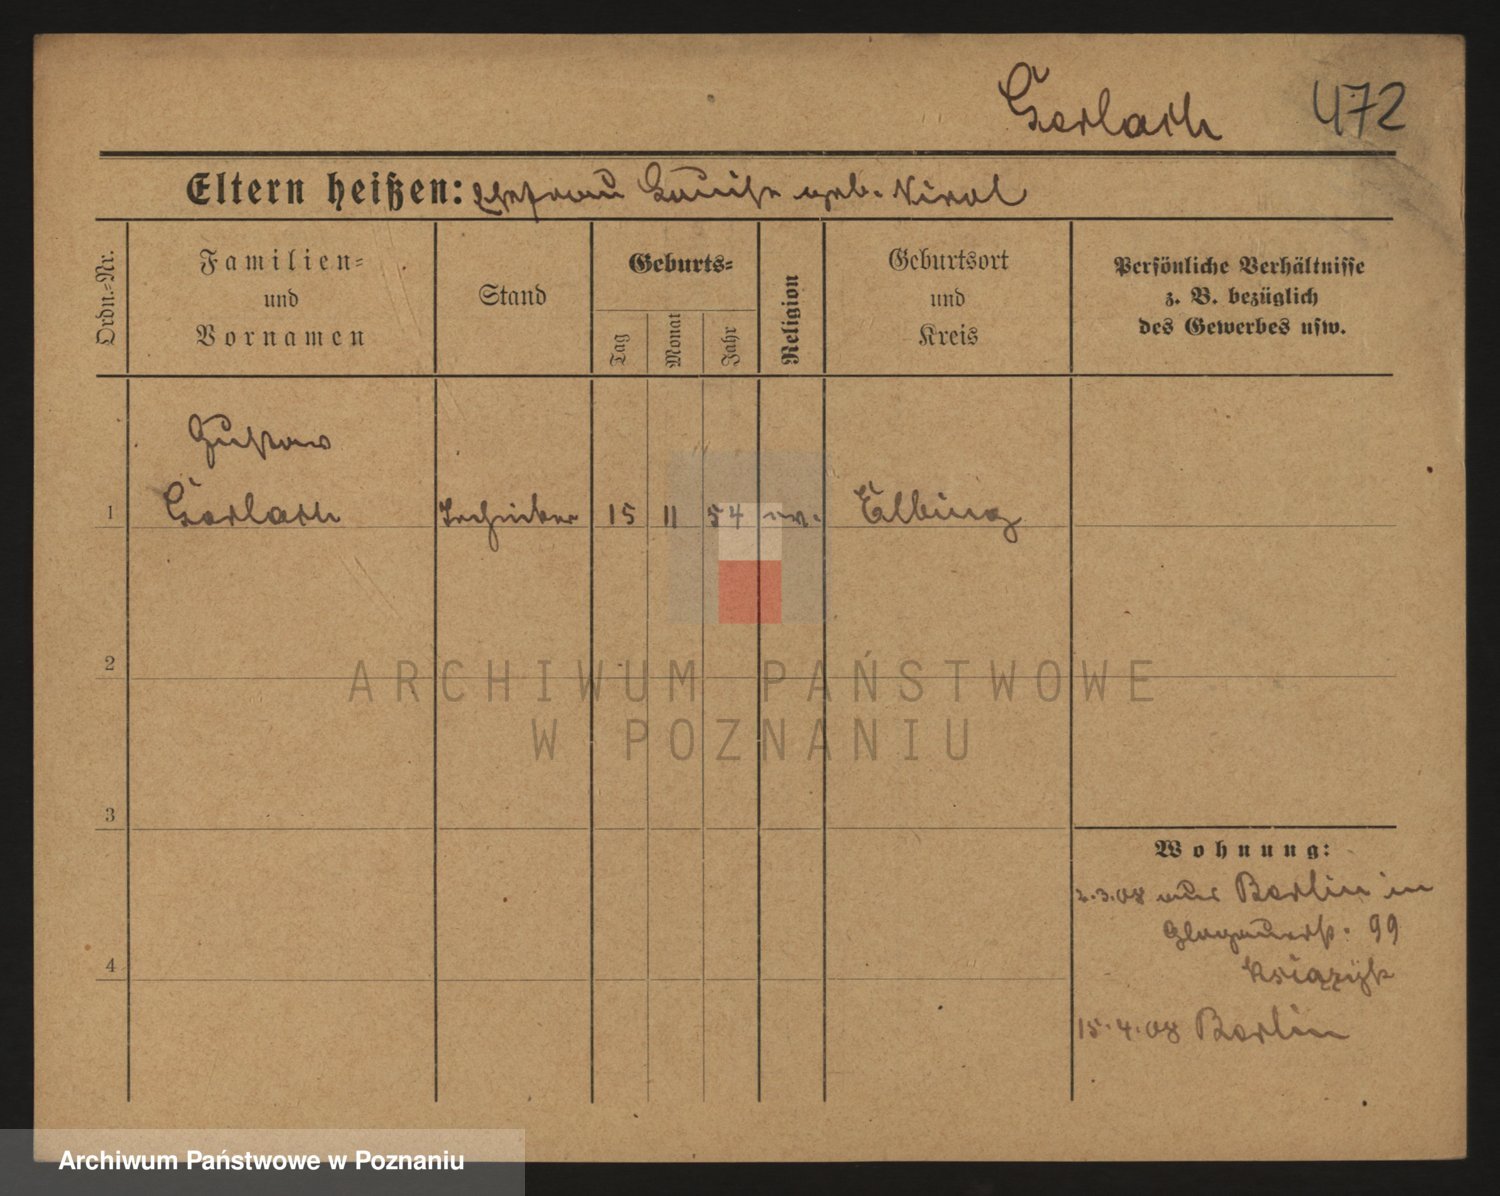 Gerlach 472
Eltern heißen: Ehefrau Louise geb. Nirol
Ordn.=Nr.
Familien=
und
Vornamen
Stand
Geburts=
Tag
Monat
Jahr
Religion
Geburtsort
und
Kreis
Persönliche Verhältnisse
z. B. bezüglich
des Gewerbes usw.
Gustav
1 Gerlach Techniker 15 11 54 ev. Elbing
2
3
4
Wohnung:
2.3.08 aus Berlin in
Glogauerst. 99
Książyk
15.4.08 Berlin
ARCHIWUM PAŃSTWOWE
W POZNANIU
Archiwum Państwowe w Poznaniu